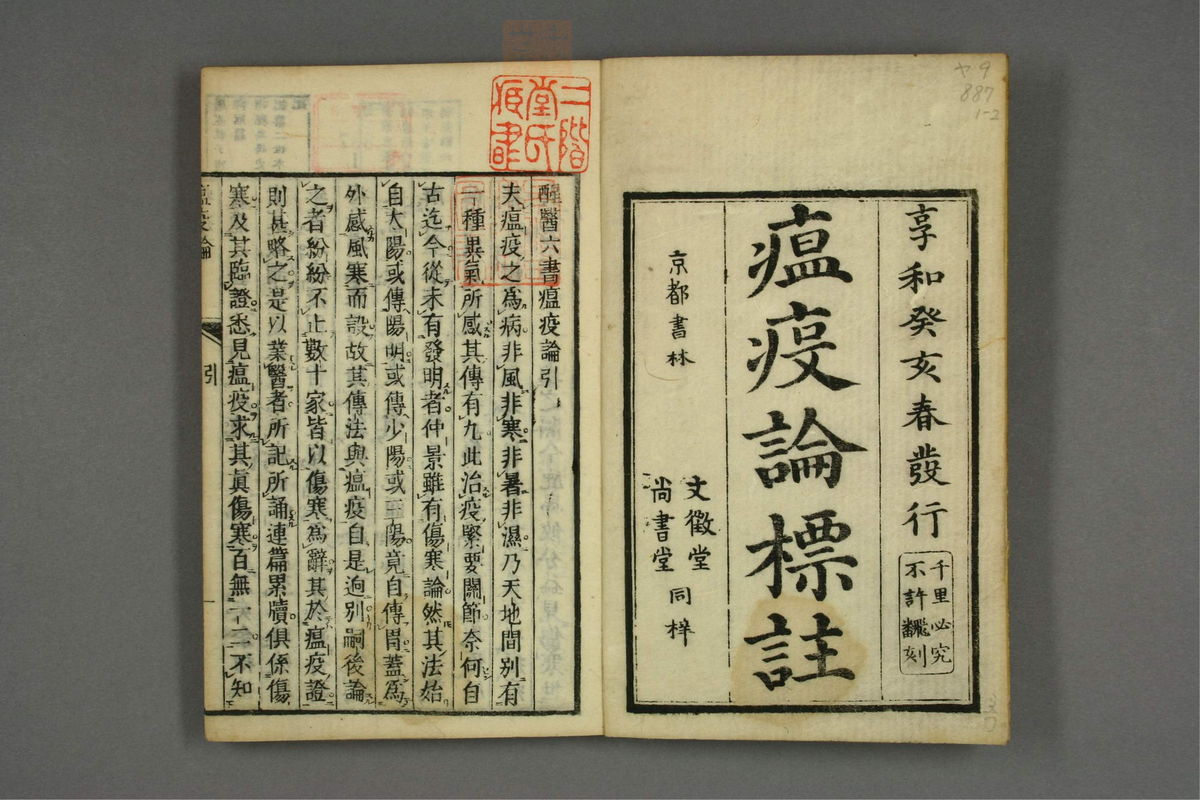 ヤ9
887
1-2
享和癸亥春發行
千里必究
不許翻刻
瘟疫論標註
京都書林
文徵堂
尚書堂
同梓
二階
堂氏
醒醫六書瘟疫論引
夫瘟疫之為病非風非寒非暑非濕乃天地間別有
一種異氣所感其傳有九此治疫緊要關節奈何自
古迄今從未有發明者仲景雖有傷寒論然其法始
自太陽或傳陽明或傳少陽或三陽竟自傳胃蓋為
外感風寒而設故其傳法與瘟疫自是逈別嗣後論
之者紛紛不止數十家皆以傷寒為辭其於瘟疫證
則甚略之是以業醫者所記所誦連篇累牘俱係傷
寒及其臨證悉見瘟疫求其真傷寒百無一二不知
瘟疫論
引
一